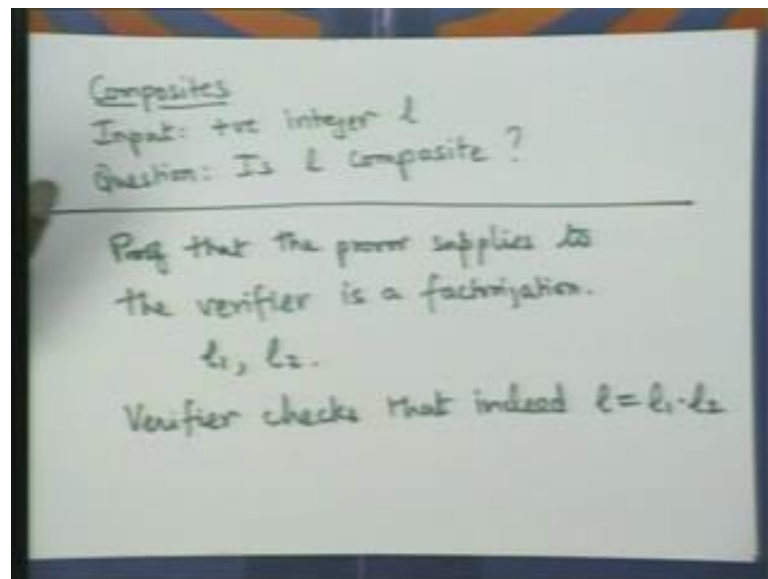 Composites
Input: +ve integer l
Question: Is l composite ?
Proof that the prover supplies to
the verifier is a factorization.
l₁, l₂.
Verifier checks that indeed l = l₁·l₂